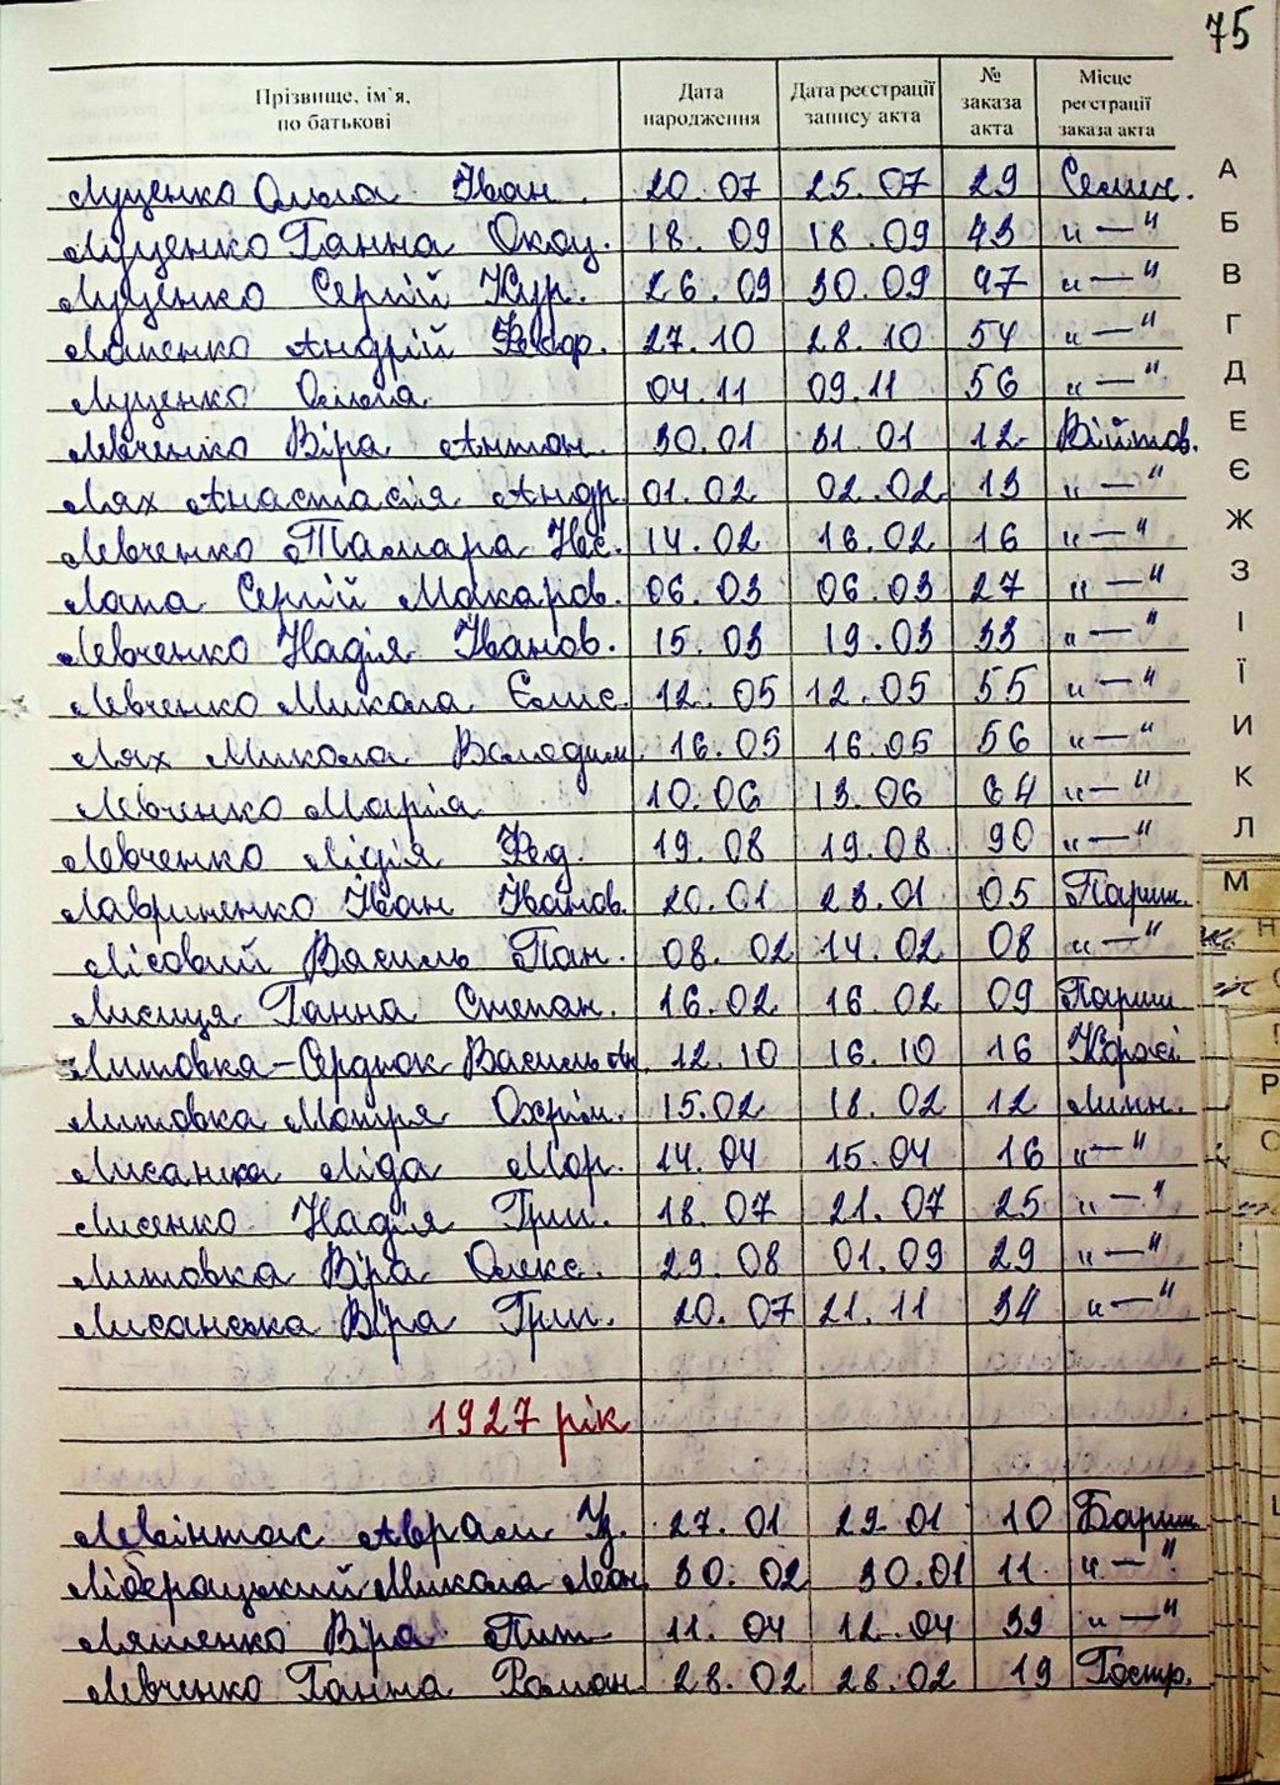 75
Прізвище, ім`я, по батькові Дата народження Дата реєстрації запису акта № заказа акта Місце реєстрації заказа акта
Луценко Ольга Іван. 20.07 25.07 29 Селищ.
Луценко Ганна 18.09 18.09 43 "—"
Луценко Сергій 26.09 30.09 47 "—"
Андрій Федор. 27.10 28.10 54 "—"
Луценко Ольга 04.11 09.11 56 "—"
Левченко Віра Антон. 30.01 31.01 12 Війтов.
Лях Анастасія Андр. 01.02 02.02 13 "—"
Левченко Тамара 14.02 16.02 16 "—"
Лапа Сергій Макаров. 06.03 06.03 27 "—"
Левченко Надія Іванов. 15.03 19.03 33 "—"
Левченко Микола Єлис. 12.05 12.05 55 "—"
Лях Микола Володим. 16.05 16.05 56 "—"
Левченко Марія 10.06 13.06 64 "—"
Левченко Лідія Фед. 19.08 19.08 90 "—"
Лавриненко Іван Іванов. 20.01 23.01 05 Париш.
Лісовий Василь Пан. 08.02 14.02 08 "—"
Лисиця Ганна Степан. 16.02 16.02 09 Париш
Литовка-Сердюк Василь 12.10 16.10 16 Коржі
Литовка Мотря Охрім. 15.02 18.02 12 Лихн.
Ліда Мар. 14.04 15.04 16 "—"
Лисенко Надія Григ. 18.07 21.07 25 "—"
Литовка Віра Олекс. 29.08 01.09 29 "—"
Віра Григ. 20.07 21.11 34 "—"
1927 рік
Левінтас Аврам 27.01 29.01 10 Бариш.
Микола Леон. 30.02 30.01 11 "—"
Ляшенко Віра Пит 11.04 12.04 39 "—"
Левченко Ганна Роман. 28.02 28.02 19 Гостр.
А
Б
В
Г
Д
Е
Є
Ж
З
І
Ї
И
К
Л
М
Н
Р
С